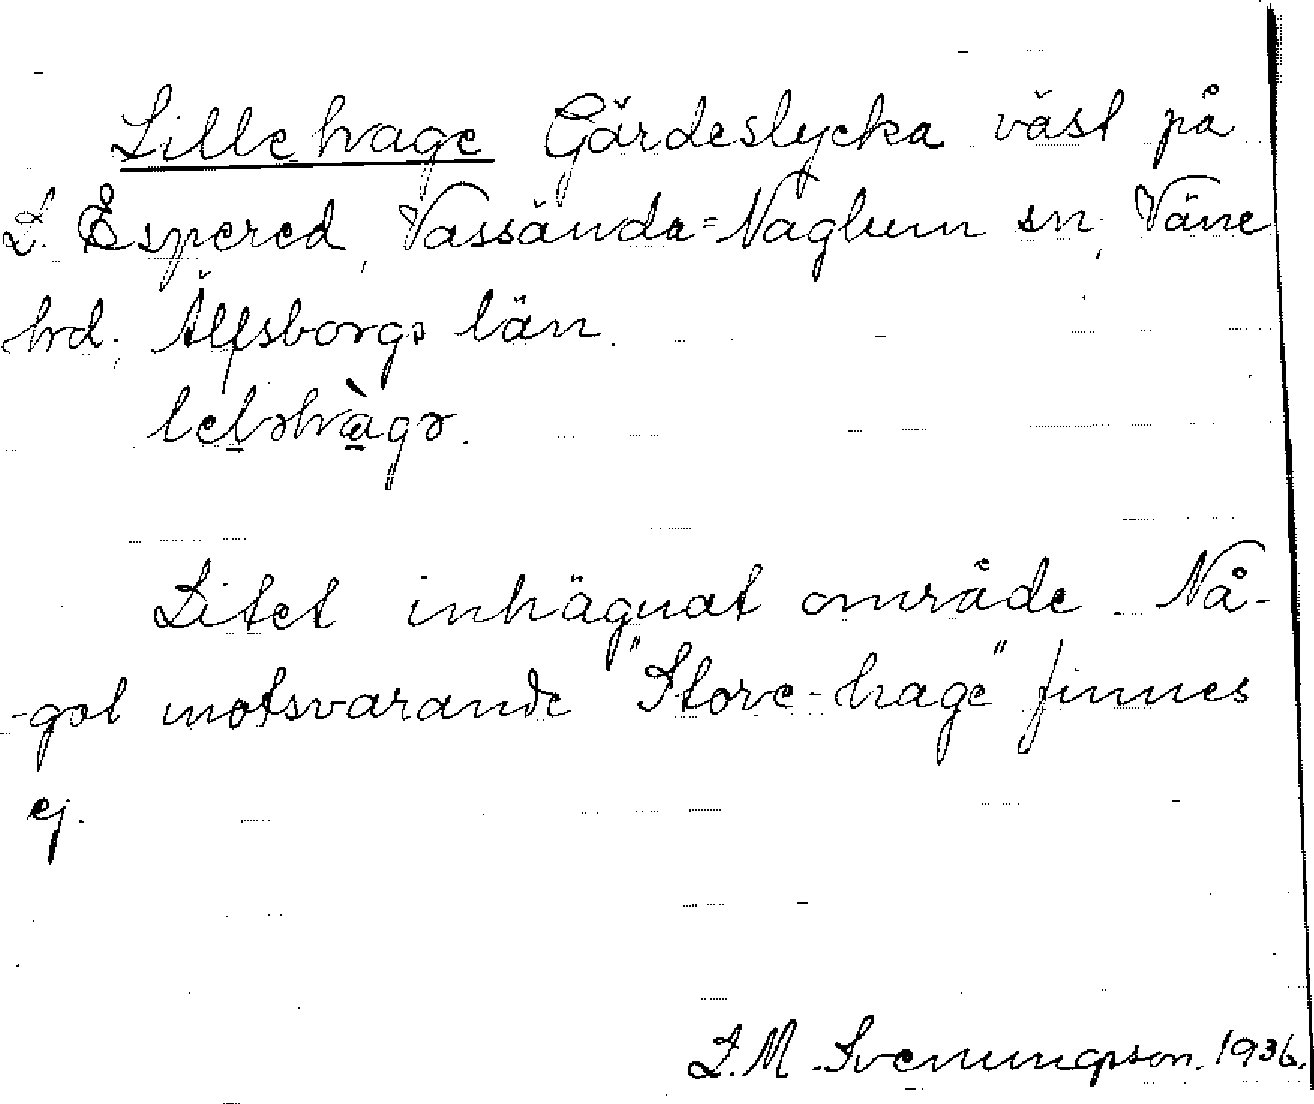 Lillehage Gärdeslycka väst på
L. Espered, Vassända=Naglum sn, Väne
hd, Älfsborgs län.
Litet inhägnat område. Nå-
-got motsvarande "Store-hage" finnes
ej.
L. M. Svenungson. 1936.